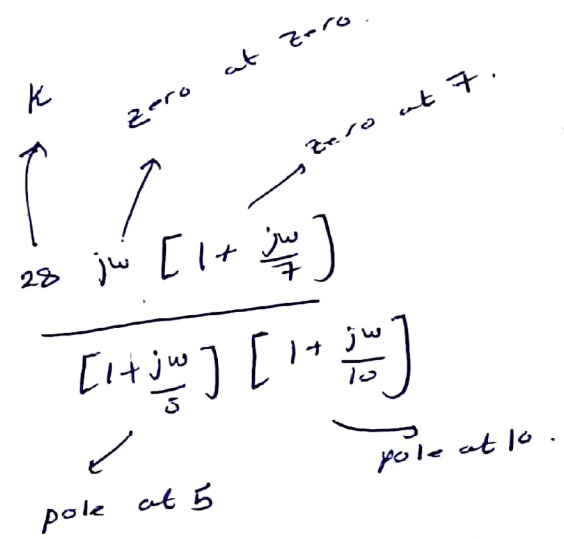 K
zero at zero.
zero at 7.
28 jw [1+ jw/7]
[1+jw/5] [1+ jw/10]
pole at 5
pole at 10.